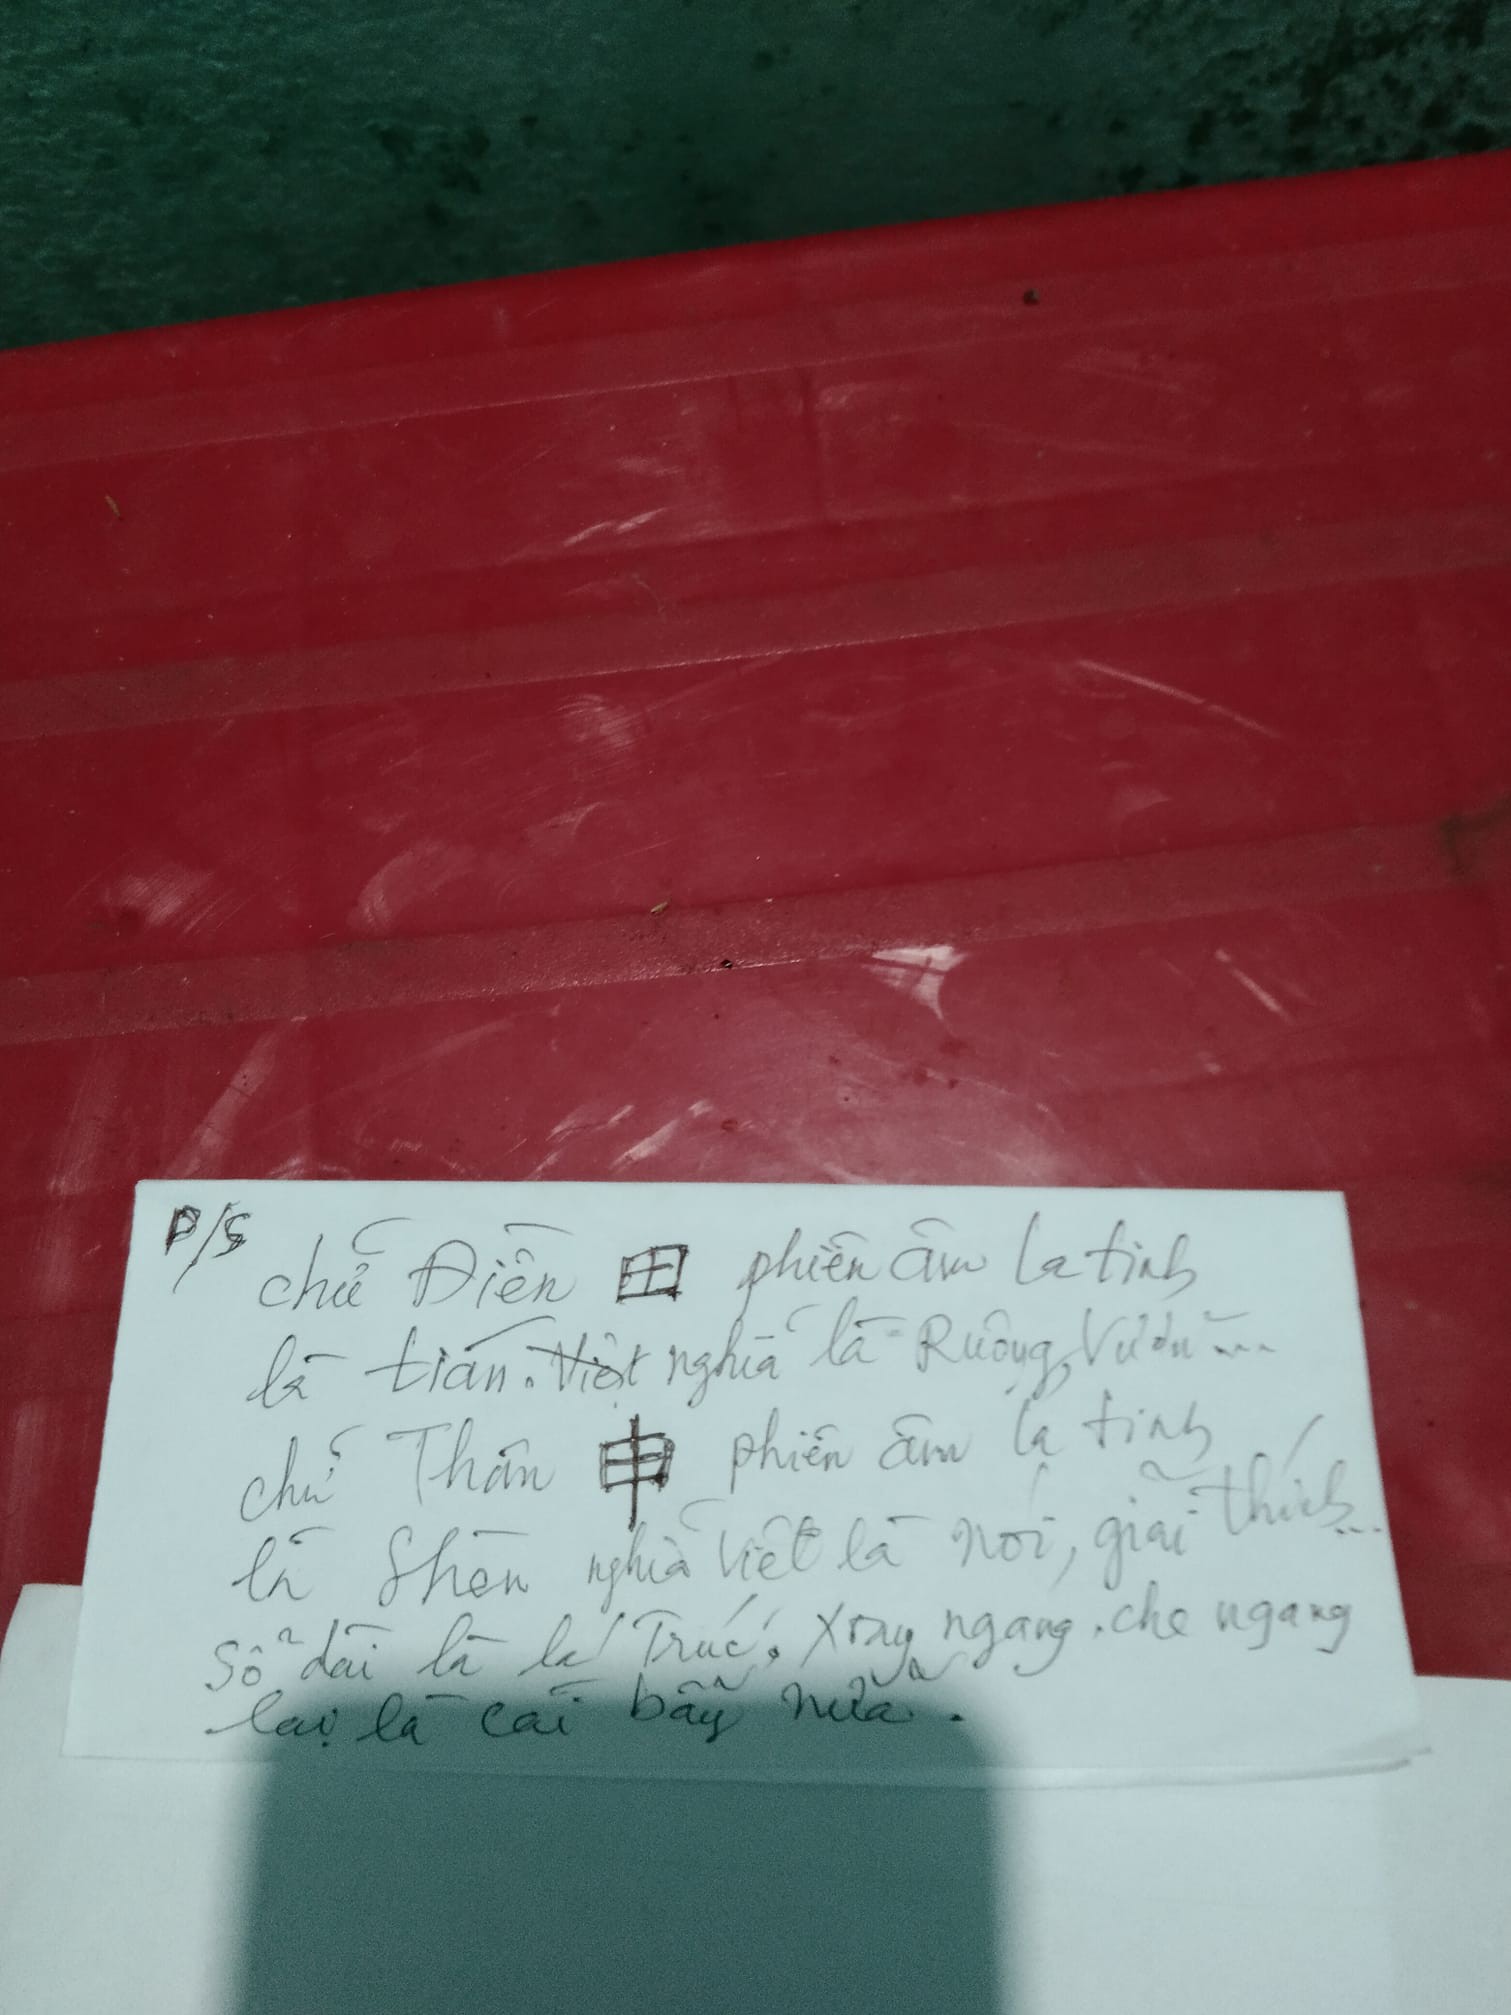 P/S
chữ Điền 田 phiên âm la tinh
là tián. Việt nghĩa là Ruộng, Vườn...
chữ Thân 申 phiên âm la tinh
là Shēn nghĩa Việt là nói, giải thích...
Sổ dài là lá Trúc. Xoay ngang. che ngang
lại là cái bẫy nữa.